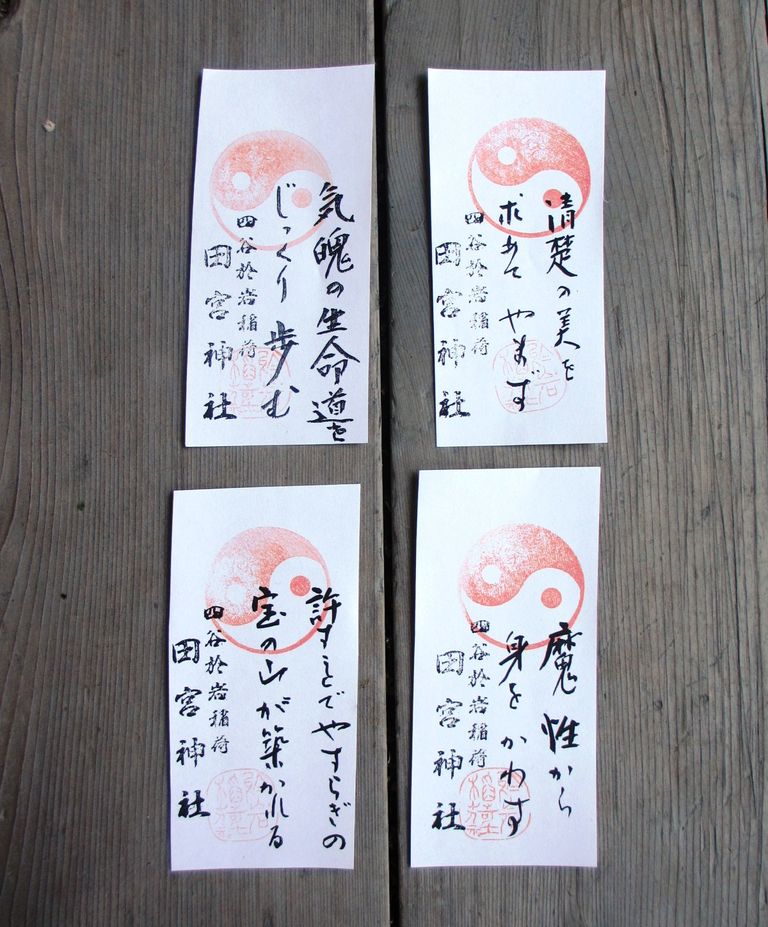 気魄の生命道を
じっくり歩む
四谷於岩稲荷
田宮神社
清楚の美を
求めてやまず
四谷於岩稲荷
田宮神社
許すことでやすらぎの
宝の山が築かれる
四谷於岩稲荷
田宮神社
魔性から
身をかわす
四谷於岩稲荷
田宮神社